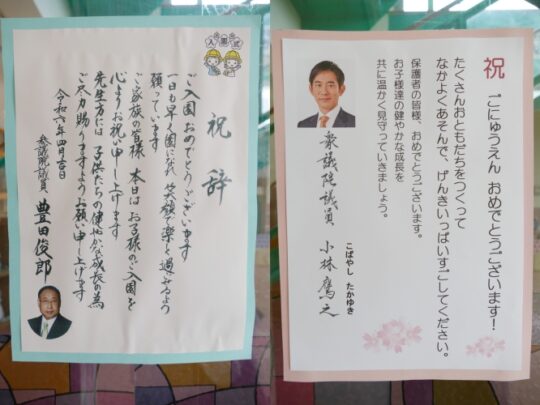 入園式
祝辞
ご入園おめでとうございます
一日も早く園になれ 笑顔で楽しく過ごせるよう
願っています
ご家族の皆様 本日はお子様のご入園を
心よりお祝い申し上げます
先生方には 子供たちの健やかな成長の為
ご尽力賜りますようお願い申し上げます
令和六年四月吉日
参議院議員 豊田俊郎
祝 ごにゅうえん おめでとうございます!
たくさんおともだちをつくって
なかよくあそんで、げんきいっぱいすごしてください。
保護者の皆様、おめでとうございます。
お子様達の健やかな成長を
共に温かく見守っていきましょう。
衆議院議員 小林鷹之
こばやし たかゆき